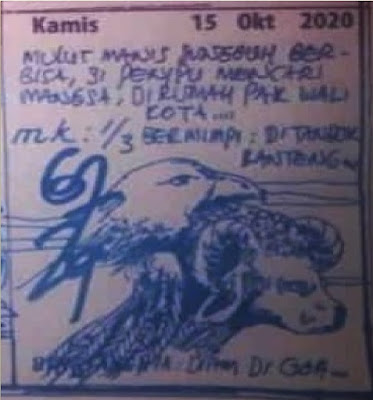 Kamis 15 Okt 2020
MULUT MANIS SUNGGUH BER-
BISA, SI PENIPU MENCARI
MANGSA, DIRUMAH PAK WALI
KOTA....
mk: 1/3 BERMIMPI: DITANDUK
BANTENG...